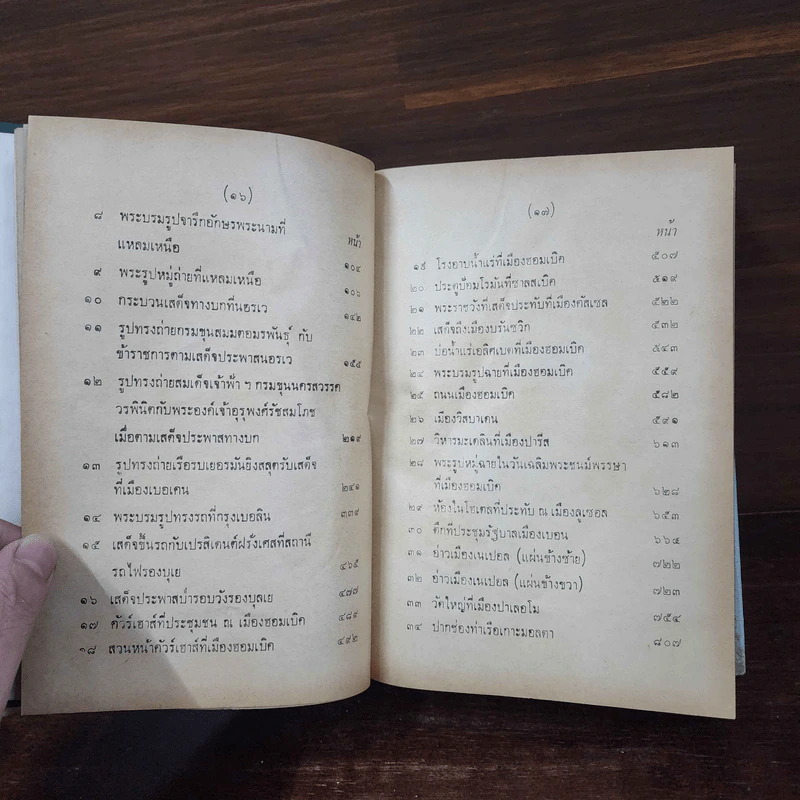 (๑๖)
หน้า
๘ พระบรมรูปจารึกอักษรพระนามที่
แหลมเหนือ ๑๐๔
๙ พระรูปหมู่ถ่ายที่แหลมเหนือ ๑๐๖
๑๐ กระบวนเสด็จทางบกที่นอรเว ๑๔๒
๑๑ รูปทรงถ่ายกรมขุนสมมตอมรพันธุ์ กับ
ข้าราชการตามเสด็จประพาสนอรเว ๑๕๕
๑๒ รูปทรงถ่ายสมเด็จเจ้าฟ้า ฯ กรมขุนนครสวรรค
วรพินิตกับพระองค์เจ้าอุรุพงศ์รัชสมโภช
เมื่อตามเสด็จประพาสทางบก ๒๑๙
๑๓ รูปทรงถ่ายเรือรบเยอรมันยิงสลุตรับเสด็จ
ที่เมืองเบอเคน ๒๔๑
๑๔ พระบรมรูปทรงรถที่กรุงเบอลิน ๓๓๙
๑๕ เสด็จขึ้นรถกับเปรสิเดนต์ฝรั่งเศสที่สถานี
รถไฟรองบุเย ๔๖๕
๑๖ เสด็จประพาสป่ารอบวังรองบุลเย ๔๗๗
๑๗ คัวร์เฮาส์ที่ประชุมชน ณ เมืองฮอมเบิค ๔๘๙
๑๘ สวนหน้าคัวร์เฮาส์ที่เมืองฮอมเบิค ๔๙๒
(๑๗)
หน้า
๑๙ โรงอาบน้ำแร่ที่เมืองฮอมเบิค ๕๐๗
๒๐ ประตูป้อมโรมันที่ซาลสเบิค ๕๑๙
๒๑ พระราชวังที่เสด็จประทับที่เมืองคัสเซล ๕๒๒
๒๒ เสด็จถึงเมืองบรันซวิก ๕๓๒
๒๓ บ่อน้ำแร่เอลิศเบตที่เมืองฮอมเบิค ๕๔๓
๒๔ พระบรมรูปฉายที่เมืองฮอมเบิค ๕๕๙
๒๕ ถนนเมืองฮอมเบิค ๕๘๒
๒๖ เมืองวิสบาเดน ๕๙๑
๒๗ วิหารมะเดลินที่เมืองปารีส ๖๑๓
๒๘ พระรูปหมู่ฉายในวันเฉลิมพระชนม์พรรษา
ที่เมืองฮอมเบิค ๖๒๘
๒๙ ห้องในโฮเตลที่ประทับ ณ เมืองลูเซอล ๖๕๓
๓๐ ตึกที่ประชุมรัฐบาลเมืองเบอน ๖๖๕
๓๑ อ่าวเมืองเนเปอล (แผ่นข้างซ้าย) ๗๒๒
๓๒ อ่าวเมืองเนเปอล (แผ่นข้างขวา) ๗๒๓
๓๓ วัดใหญ่ที่เมืองปาเลอโม ๗๕๔
๓๔ ปากช่องท่าเรือเกาะมอลตา ๘๐๗